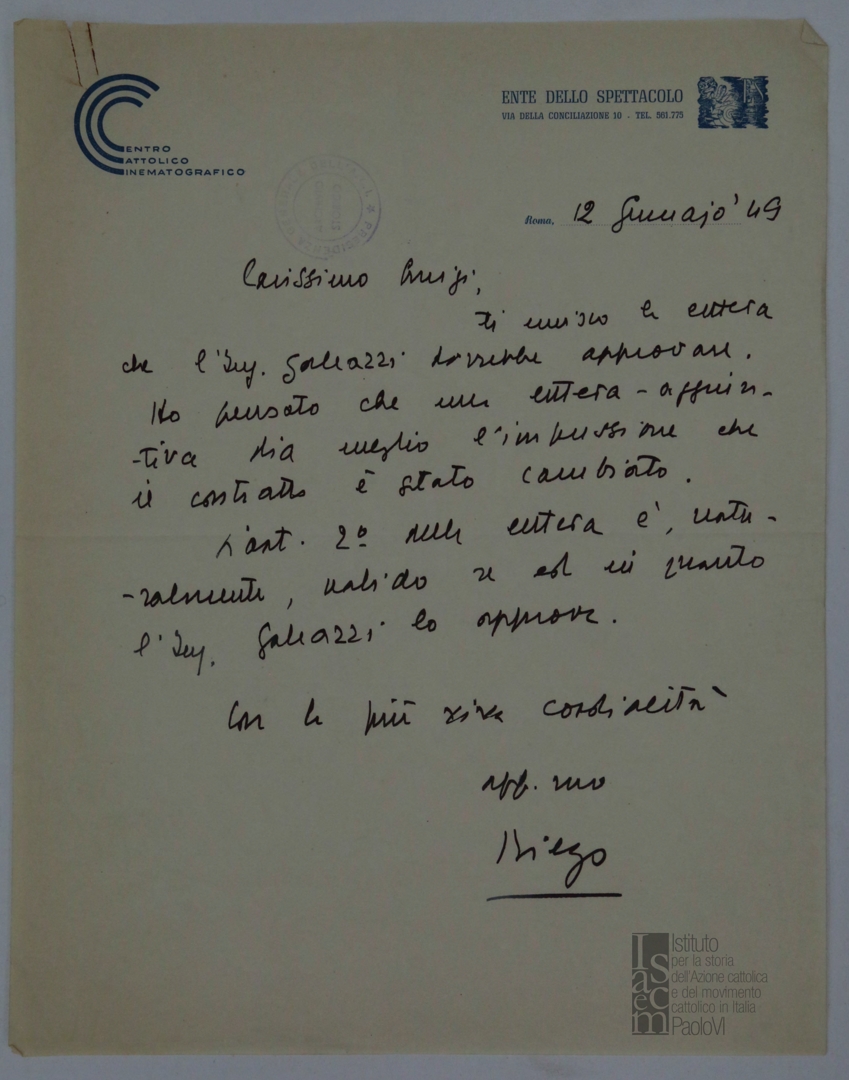 CENTRO
CATTOLICO
CINEMATOGRAFICO
ENTE DELLO SPETTACOLO
VIA DELLA CONCILIAZIONE 10 - TEL. 561.775
Roma, 12 Gennajo '49
Carissimo Luigi,
ti unisco la lettera
che l'Ing. Galeazzi dovrebbe approvare.
Ho pensato che una lettera-aggiun-
-tiva dia meglio l'impressione che
il contratto è stato cambiato.
L'art. 2º della lettera è, natu-
-ralmente, valido se ed in quanto
l'Ing. Galeazzi lo approva.
Con la più viva cordialità
aff. mo
Diego
Istituto
per la storia
dell'Azione cattolica
e del movimento
cattolico in Italia
PaoloVI
Isacem